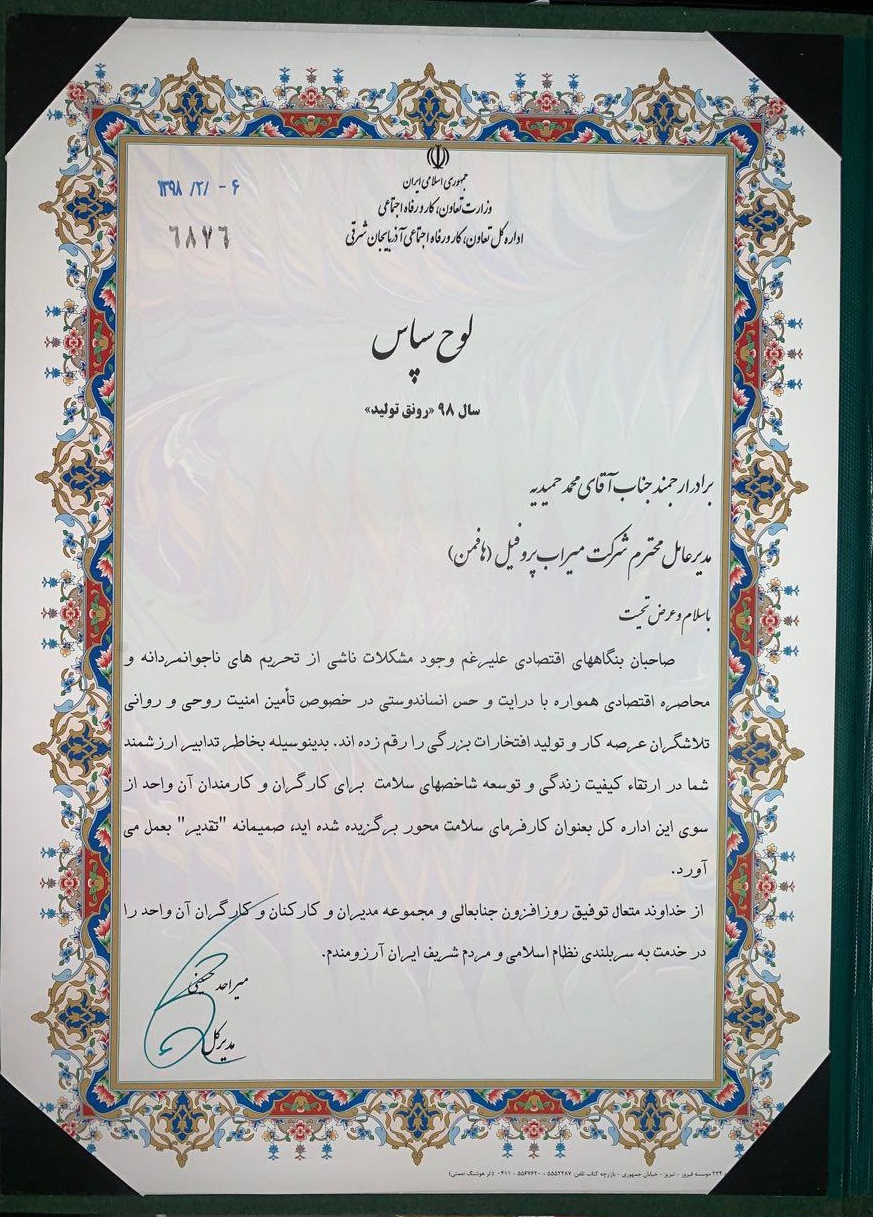 جمهوری اسلامی ایران
وزارت تعاون، کار و رفاه اجتماعی
اداره کل تعاون، کار و رفاه اجتماعی آذربایجان شرقی
۱۳۹۸ /۲/ - ۶
٦٨٧٦
لوح سپاس
سال ۹۸ «رونق تولید»
برادر ارجمند جناب آقای محمد حمیدیه
مدیرعامل محترم شرکت میراب پروفیل (هافمن)
با سلام و عرض تحیت
صاحبان بنگاههای اقتصادی علیرغم وجود مشکلات ناشی از تحریم های ناجوانمردانه و
محاصره اقتصادی همواره با درایت و حس انساندوستی در خصوص تأمین امنیت روحی و روانی
تلاشگران عرصه کار و تولید افتخارات بزرگی را رقم زده اند. بدینوسیله بخاطر تدابیر ارزشمند
شما در ارتقاء کیفیت زندگی و توسعه شاخصهای سلامت برای کارگران و کارمندان آن واحد از
سوی این اداره کل بعنوان کارفرمای سلامت محور برگزیده شده اید، صمیمانه "تقدیر" بعمل می
آورد.
از خداوند متعال توفیق روزافزون جنابعالی و مجموعه مدیران و کارکنان و کارگران آن واحد را
در خدمت به سربلندی نظام اسلامی و مردم شریف ایران آرزومندم.
میراحد حسینی
مدیرکل
۲۲۴ موسسه فیروز - تبریز - خیابان جمهوری - بازرچه کتاب تلفن: ۵۵۵۲۲۸۷ - ۵۵۶۷۶۲۰ - ۰۴۱۱ (اثر هوشنگ نعمتی)